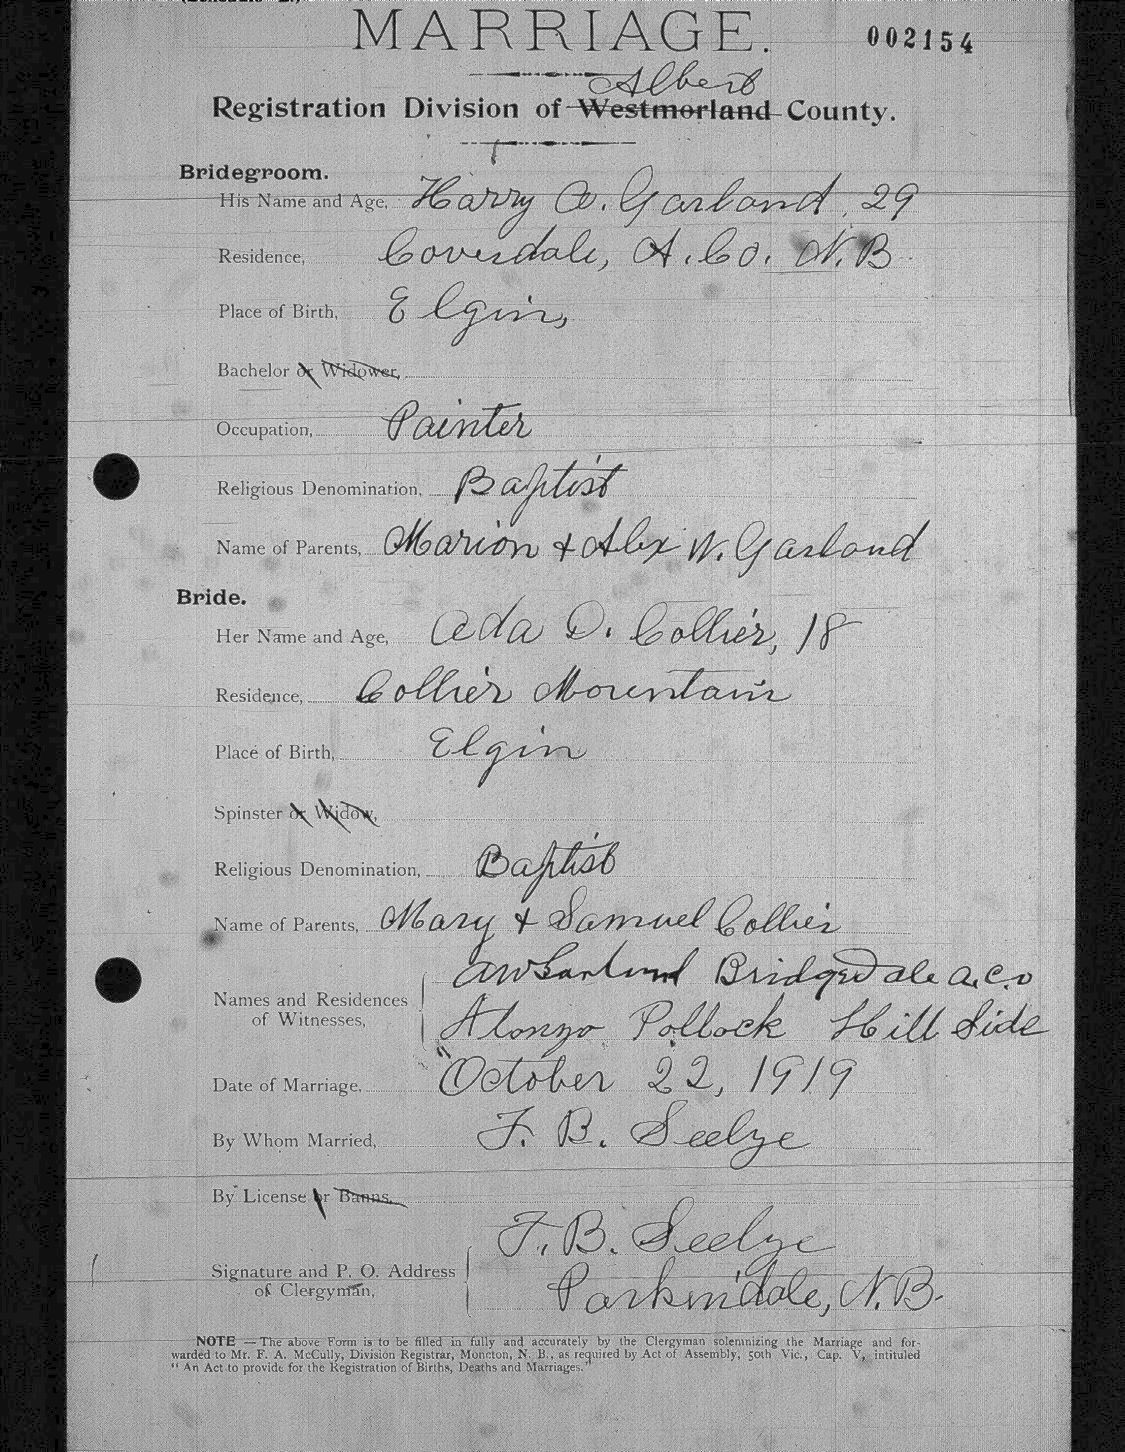 MARRIAGE.
002154
Albert
Registration Division of Westmorland County.
Bridegroom.
His Name and Age, Harry A. Garland, 29
Residence, Coverdale, A. Co. N. B.
Place of Birth, Elgin,
Bachelor or Widower,
Occupation, Painter
Religious Denomination, Baptist
Name of Parents, Marion & Alex W. Garland
Bride.
Her Name and Age, Ada D. Collier, 18
Residence, Collier Mountain
Place of Birth, Elgin
Spinster or Widow,
Religious Denomination, Baptist
Name of Parents, Mary & Samuel Collier
Names and Residences of Witnesses,
AW Garland Bridgedale A.Co
Alonzo Pollock Hill Side
Date of Marriage, October 22, 1919
By Whom Married, F. B. Seelye
By License or Banns,
Signature and P. O. Address of Clergyman,
F. B. Seelye
Parkindale, N. B.
NOTE — The above Form is to be filled in fully and accurately by the Clergyman solemnizing the Marriage and for-
warded to Mr. F. A. McCully, Division Registrar, Moncton, N. B., as required by Act of Assembly, 50th Vic., Cap. V, intituled
" An Act to provide for the Registration of Births, Deaths and Marriages."